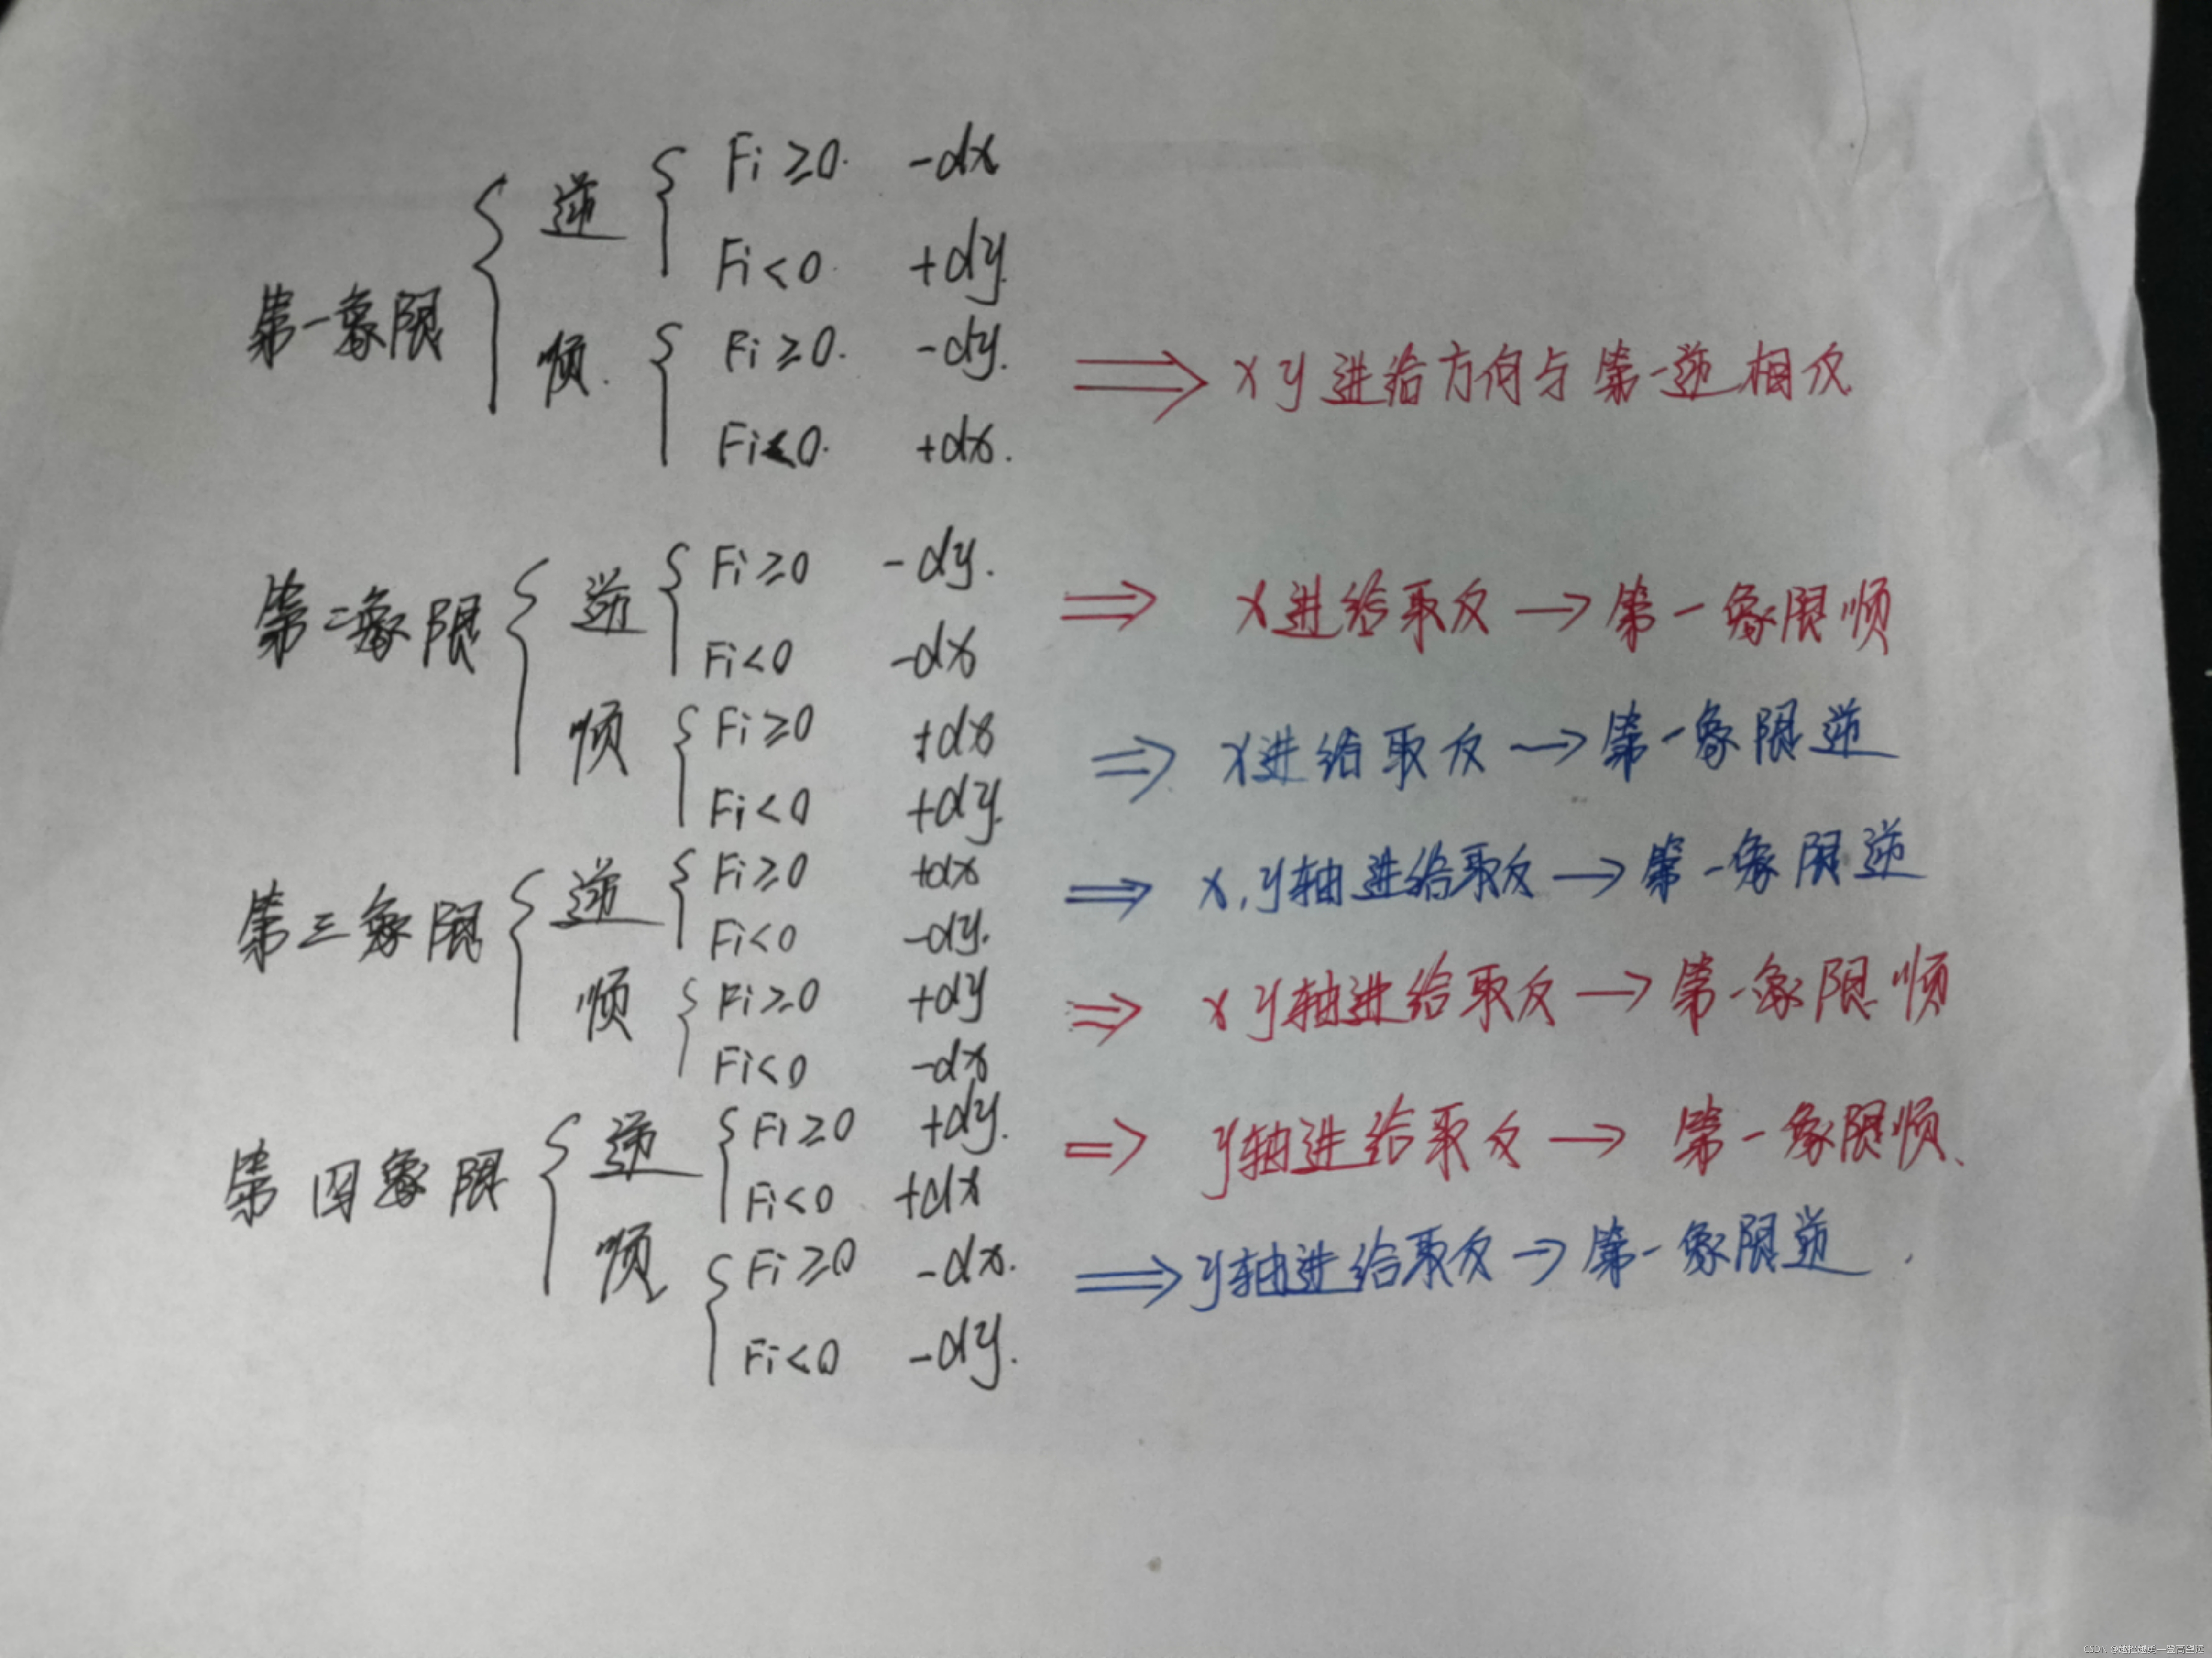 Fi ≥0. -dx
逆
Fi <0. +dy.
第一象限
顺. Fi ≥0. -dy. ⇒ x y 进给方向与第一逆相反
Fi<0. +dx.
Fi ≥0 -dy. ⇒ x进给取反 → 第一象限顺
逆
第二象限
Fi<0 -dx
顺 Fi ≥0 +dx ⇒ x进给取反 → 第一象限逆
Fi<0 +dy.
Fi ≥0 +dx ⇒ x,y轴进给取反 → 第一象限逆
逆
第三象限
Fi<0 -dy.
顺 Fi ≥0 +dy ⇒ x y轴进给取反 → 第一象限顺
Fi<0 -dx
Fi ≥0 +dy. ⇒ y轴进给取反 → 第一象限顺、
逆
第四象限
Fi<0 +dx
顺 Fi ≥0 -dx. ⇒ y轴进给取反 → 第一象限逆.
Fi<0 -dy.
CSDN @越挫越勇—登高望远